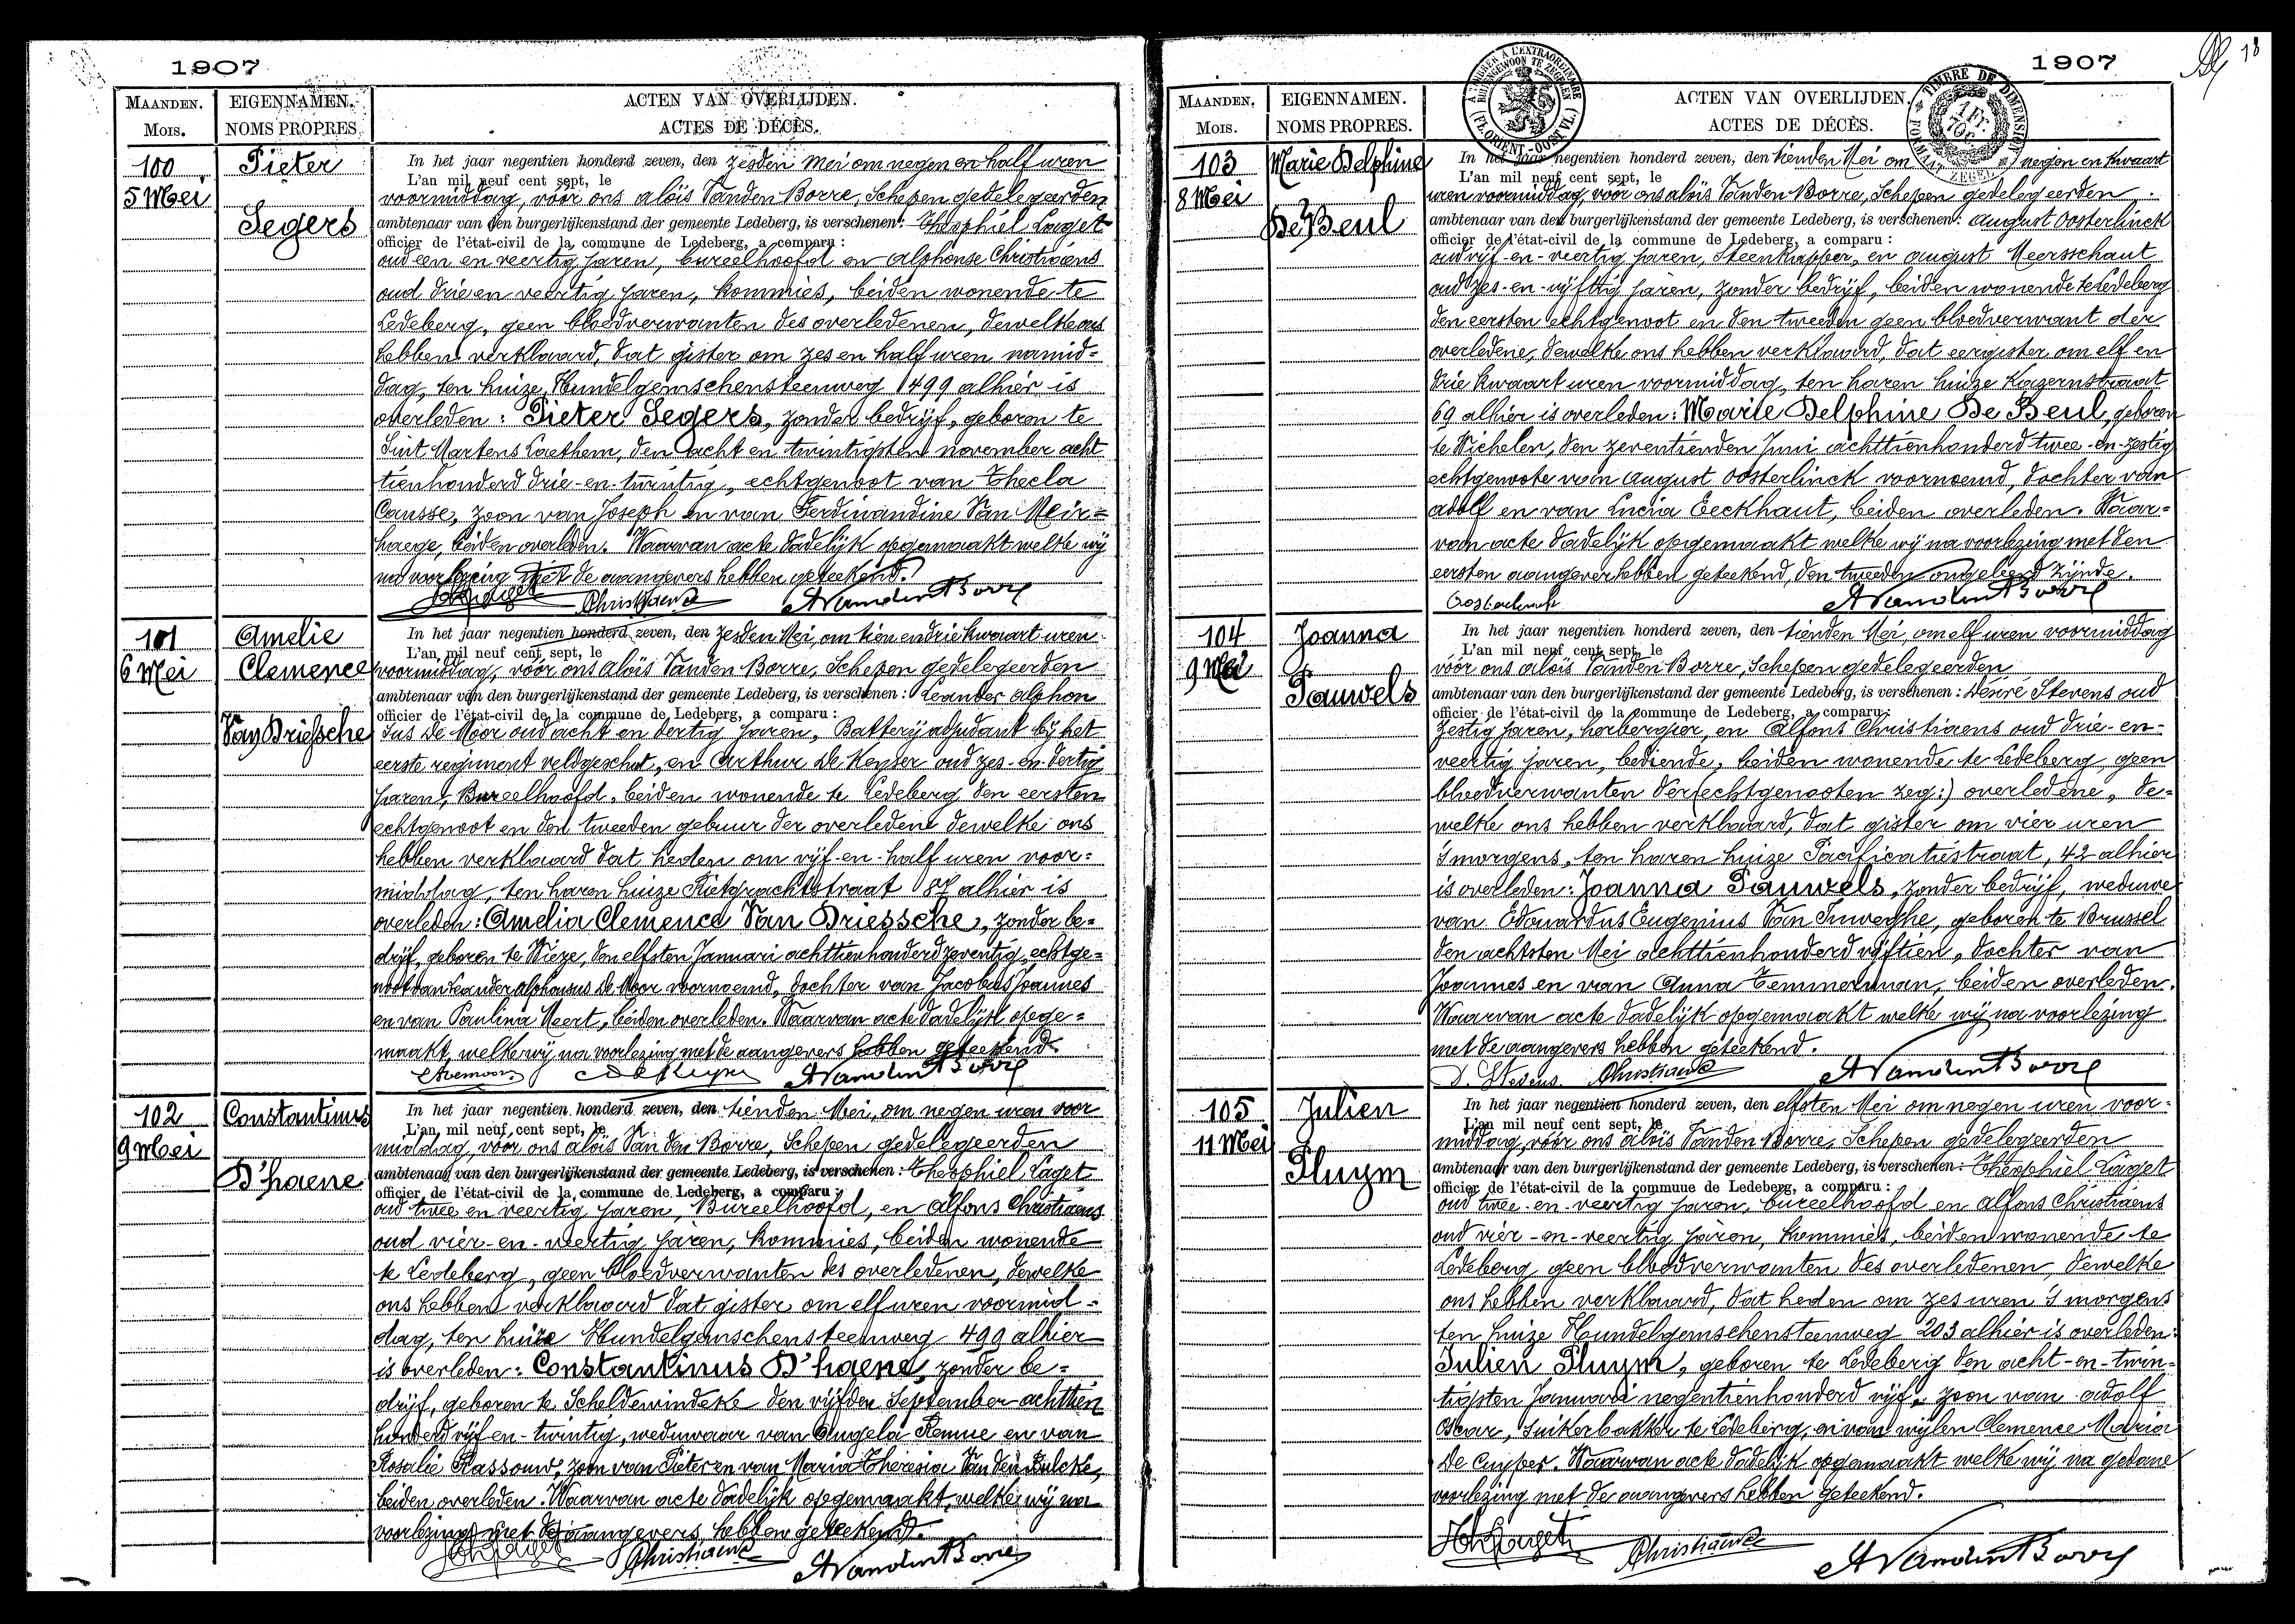 1907
MAANDEN. EIGENNAMEN. ACTEN VAN OVERLIJDEN.
MOIS. NOMS PROPRES. ACTES DE DÉCÈS.
100 Pieter
5 Mei
Segers
In het jaar negentien honderd zeven, den zesden Mei om negen en half uren
L'an mil neuf cent sept, le
voormiddag, vóór ons aloïs Vanden Borre, Schepen gedelegeerden
ambtenaar van den burgerlijkenstand der gemeente Ledeberg, is verschenen: Theophiel Laget
officier de l'état-civil de la commune de Ledeberg, a comparu:
oud een en veertig jaren, bureelhoofd en alphonse Christiaens
oud drie en veertig jaren, kommies, beiden wonende te
Ledeberg, geen bloedverwanten des overledenen, dewelke ons
hebben verklaard, dat gister om zes en half uren namid=
dag, ten huize Hundelgemschensteenweg 499 alhier is
overleden: Pieter Segers, zonder bedrijf, geboren te
Sint Martens Laethem, den acht en twintigsten november acht
tienhonderd drie-en-twintig, echtgenoot van Thecla
Causse, zoon van Joseph en van Ferdinandine Van Meir=
haege, beiden overleden. Waarvan acte dadelijk opgemaakt welke wij
na voorlezing met de aangevers hebben geteekend.
Laget Christiaens AVandenBorre
101 Amelie
6 Mei Clemence
Van Driessche
In het jaar negentien honderd zeven, den zesden Mei, om tien en drie kwaart uren
L'an mil neuf cent sept, le
voormiddag, vóór ons aloïs Vanden Borre, Schepen gedelegeerden
ambtenaar van den burgerlijkenstand der gemeente Ledeberg, is verschenen: Leander alphon
officier de l'état-civil de la commune de Ledeberg, a comparu:
sus De Moor oud acht en dertig jaren, Batterij adjudant bij het
eerste regiment veldgeschut, en Arthur De Keyser oud zes-en-dertig
jaren, Bureelhoofd, beiden wonende te Ledeberg den eersten
echtgenoot en den tweeden gebuur der overledene dewelke ons
hebben verklaard dat heden om vijf-en-half uren voor=
middag, ten haren huize Rietgrachtstraat 87 alhier is
overleden: Amelia Clemence Van Driessche, zonder be=
drijf, geboren te Wieze, den elfsten Januari achttienhonderd zeventig, echtge=
noot van Leander alphonsus De Moor voornoemd, dochter van Jacobus Joannes
en van Paulina Meert, beiden overleden. Waarvan acte dadelijk opge=
maakt, welke wij na voorlezing met de aangevers hebben geteekend.
LDemoor DeKeyser AVandenBorre
102 Constantinus
9 Mei
D'haene
In het jaar negentien honderd zeven, den tienden Mei, om negen uren voor
L'an mil neuf cent sept, le
middag, vóór ons aloïs Van den Borre, Schepen gedelegeerden
ambtenaar van den burgerlijkenstand der gemeente Ledeberg, is verschenen: Theophiel Laget
officier de l'état-civil de la commune de Ledeberg, a comparu:
oud twee en veertig jaren, Bureelhoofd, en Alfons Christiaens
oud vier-en-veertig jaren, kommies, beiden wonende
te Ledeberg, geen bloedverwanten des overledenen, dewelke
ons hebben verklaard dat gister om elf uren voormid=
dag, ten huize Hundelgemschensteenweg 499 alhier
is overleden: Constantinus D'haene, zonder be=
drijf, geboren te Scheldewindeke den vijfden September achttien
honderd vijf en-twintig, weduwaar van Angela Remue en van
Rosalie Rassouw, zoon van Pieter en van Maria Theresia Van den Bulcke,
beiden overleden. Waarvan acte dadelijk opgemaakt, welke wij na
voorlezing met de aangevers hebben geteekend.
Laget Christiaens AVandenBorre
1907
18
MAANDEN. EIGENNAMEN. ACTEN VAN OVERLIJDEN.
MOIS. NOMS PROPRES. ACTES DE DÉCÈS.
A TIMBRER A L'EXTRAORDINAIRE
BUITENGEWOON TE ZEGELEN
(FL. ORIENT.-OOST VL.)
TIMBRE DE DIMENSION
FORMAAT ZEGEL
1 Fr.
70c.
103 Marie Delphine
8 Mei
De Beul
In het jaar negentien honderd zeven, den tienden Mei om negen en kwaart
L'an mil neuf cent sept, le
uren voormiddag, vóór ons aloïs Vanden Borre, Schepen gedelegeerden
ambtenaar van den burgerlijkenstand der gemeente Ledeberg, is verschenen: august Oosterlinck
officier de l'état-civil de la commune de Ledeberg, a comparu:
oud vijf-en-veertig jaren, Steenkapper, en august Meersschaut
oud zes-en-vijftig jaren, zonder bedrijf, beiden wonende te Ledeberg
den eersten echtgenoot en den tweeden geen bloedverwant der
overledene, dewelke ons hebben verklaard, dat eergister om elf en
drie kwaart uren voormiddag, ten haren huize Kazernstraat
69 alhier is overleden: Marie Delphine De Beul, geboren
te Wichelen, den zeventienden Juni achttienhonderd twee-en-zestig
echtgenoote van august Oosterlinck voornoemd, dochter van
adolf en van Lucia Eeckhaut, beiden overleden. Waar=
van acte dadelijk opgemaakt welke wij na voorlezing met den
eersten aangever hebben geteekend, den tweeden ongeleerd zijnde.
Oosterlinck AVandenBorre
104 Joanna
9 Mei
Pauwels
In het jaar negentien honderd zeven, den tienden Mei, om elf uren voormiddag
L'an mil neuf cent sept, le
vóór ons aloïs Vanden Borre, Schepen gedelegeerden
ambtenaar van den burgerlijkenstand der gemeente Ledeberg, is verschenen: Désiré Stevens oud
officier de l'état-civil de la commune de Ledeberg, a comparu:
zestig jaren, herbergier, en Alfons Christiaens oud drie-en-
veertig jaren, bediende, beiden wonende te Ledeberg, geen
bloedverwanten der (echtgenooten zeg:) overledene, de=
welke ons hebben verklaard, dat gister om vier uren
's morgens, ten haren huize Pacificatiestraat, 42 alhier
is overleden: Joanna Pauwels, zonder bedrijf, weduwe
van Edouardus Eugenius Van Inweghe, geboren te Brussel
den achtsten Mei achttienhonderd vijftien, dochter van
Joannes en van Anna Temmerman, beiden overleden.
Waarvan acte dadelijk opgemaakt welke wij na voorlezing
met de aangevers hebben geteekend.
D. Stevens Christiaens AVandenBorre
105 Julien
11 Mei
Pluym
In het jaar negentien honderd zeven, den elfsten Mei om negen uren voor=
L'an mil neuf cent sept, le
middag, vóór ons aloïs Vanden Borre, Schepen gedelegeerden
ambtenaar van den burgerlijkenstand der gemeente Ledeberg, is verschenen: Théophiel Laget
officier de l'état-civil de la commune de Ledeberg, a comparu:
oud twee-en-veertig jaren, bureelhoofd en alfons Christiaens
oud vier-en-veertig jaren, kommies, beiden wonende te
Ledeberg geen bloedverwanten des overledenen, dewelke
ons hebben verklaard, dat heden om zes uren 's morgens
ten huize Hundelgemschensteenweg 203 alhier is overleden:
Julien Pluym, geboren te Ledeberg den acht-en-twin=
tigsten Januari negentienhonderd vijf, zoon van adolf
Oscar, suikerbakker te Ledeberg, en van wijlen Clemence Maria
De Cuyper. Waarvan acte dadelijk opgemaakt welke wij na gedane
voorlezing met de aangevers hebben geteekend.
Laget Christiaens AVandenBorre